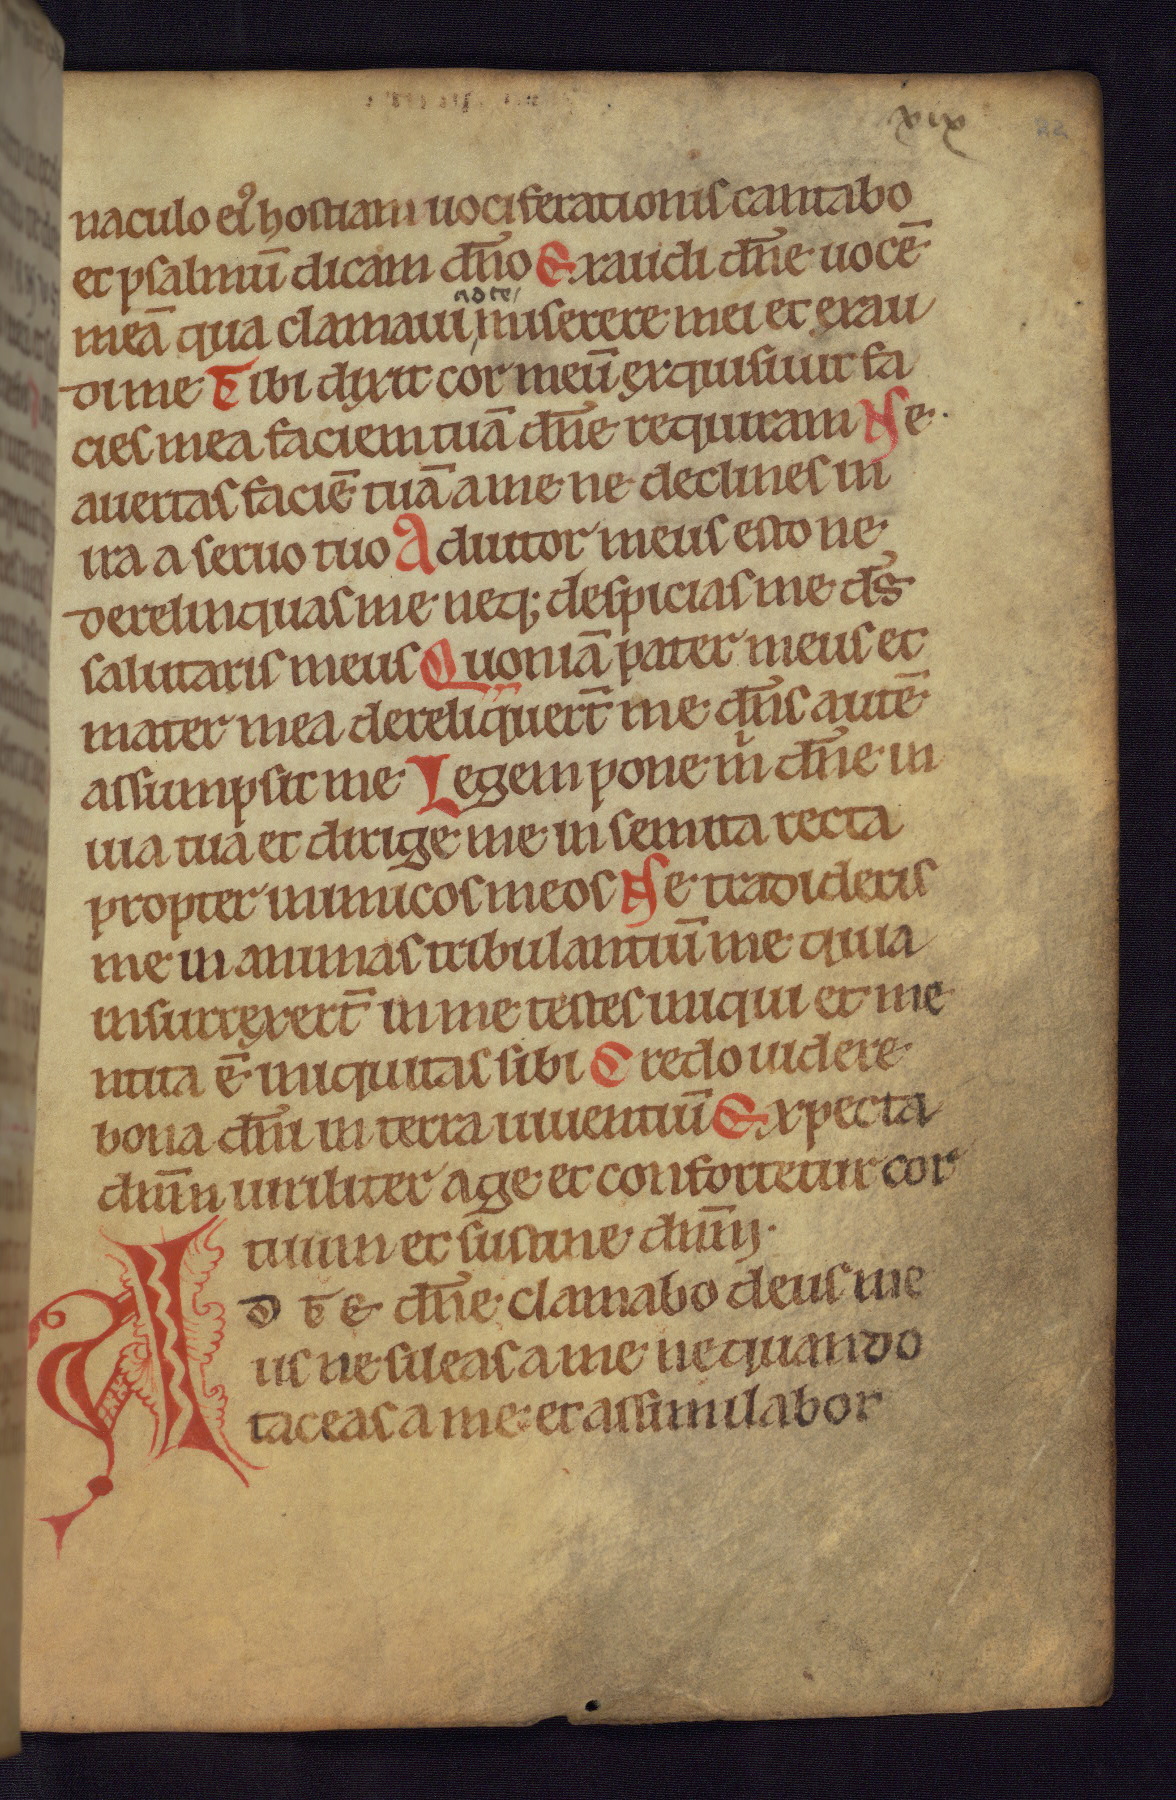 xix
naculo ei᷒ hostiam uociferationis cantabo
et psalmū dicam dn̄o Exaudi dn̄e uocē
ad te
meā qua clamaui miserere mei et exau
di me Tibi dixit cor meū exquisiuit fa
cies mea faciem tuā dn̄e requiram Ne
auertas faciē tuā a me ne declines in
ira a seruo tuo Adiutor meus esto ne
derelinquas me neq; despicias me ds̄
salutaris meus Quoniā pater meus et
mater mea dereliquert̄ me dn̄s autē
assumpsit me Legem pone m̍ dn̄e in
uia tua et dirige me in semita recta
propter inimicos meos Ne tradideris
me in animas tribulantiū me quia
insurrexert̄ in me testes iniqui et me
ntita ē iniquitas sibi Credo uidere
bona dn̄i in terra uiuentiū Expecta
dnm̄ uiriliter age et confortetur cor
tuum et sustine dnm̄.
AD TE dn̄e clamabo deus me
us ne sileas a me nequando
taceas a me: et assimilabor